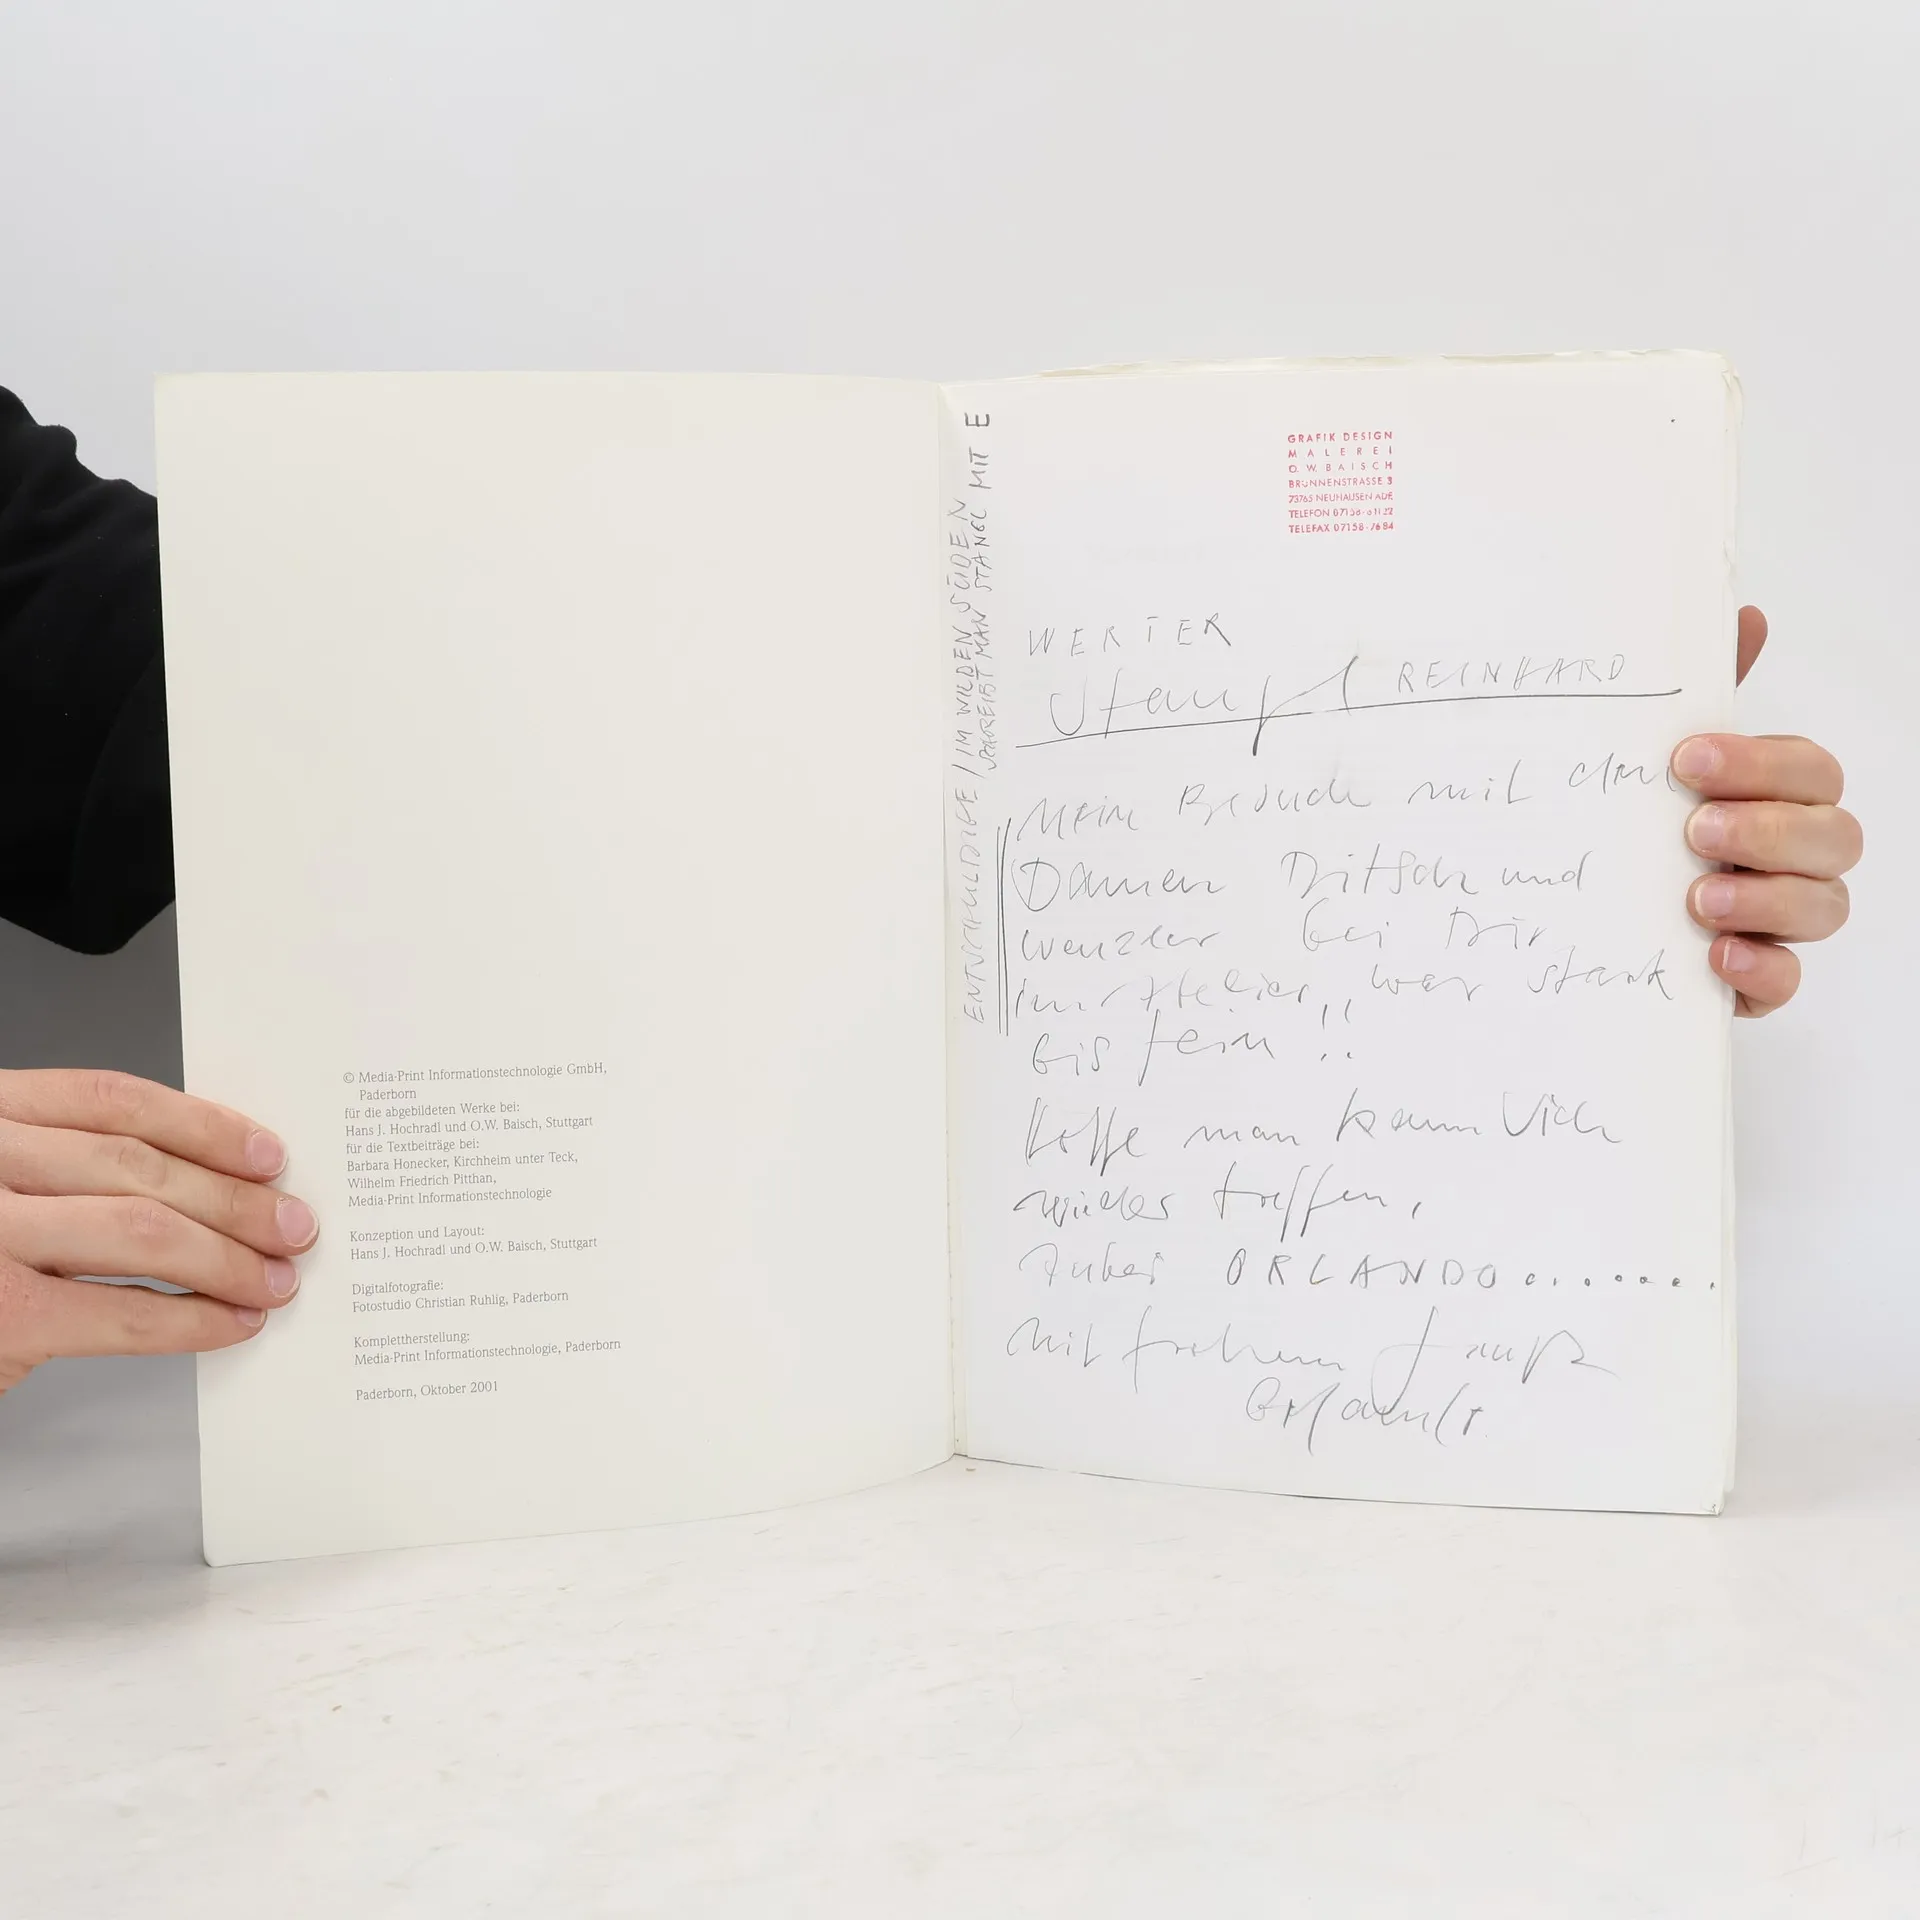 © Media-Print Informationstechnologie GmbH,
Paderborn
für die abgebildeten Werke bei:
Hans J. Hochradl und O.W. Baisch, Stuttgart
für die Textbeiträge bei:
Barbara Honecker, Kirchheim unter Teck,
Wilhelm Friedrich Pitthan,
Media-Print Informationstechnologie
Konzeption und Layout:
Hans J. Hochradl und O.W. Baisch, Stuttgart
Digitalfotografie:
Fotostudio Christian Ruhlig, Paderborn
Komplettherstellung:
Media-Print Informationstechnologie, Paderborn
Paderborn, Oktober 2001
ENTSCHULDIGE / IM WILDEN SÜDEN
SCHREIBT MAN STANGL MIT E
GRAFIK DESIGN
MALEREI
O. W. BAISCH
BRUNNENSTRASSE 3
73765 NEUHAUSEN ADF.
TELEFON
TELEFAX 07158-7684
WERTER
REINHARD
Mein Besuch mit
Damen und
Wenzler bei Dir
im Atelier, war stark
bis fein !!
Hoffe man kann Dich
wieder treffen,
ORLANDO.........
Mit frohem